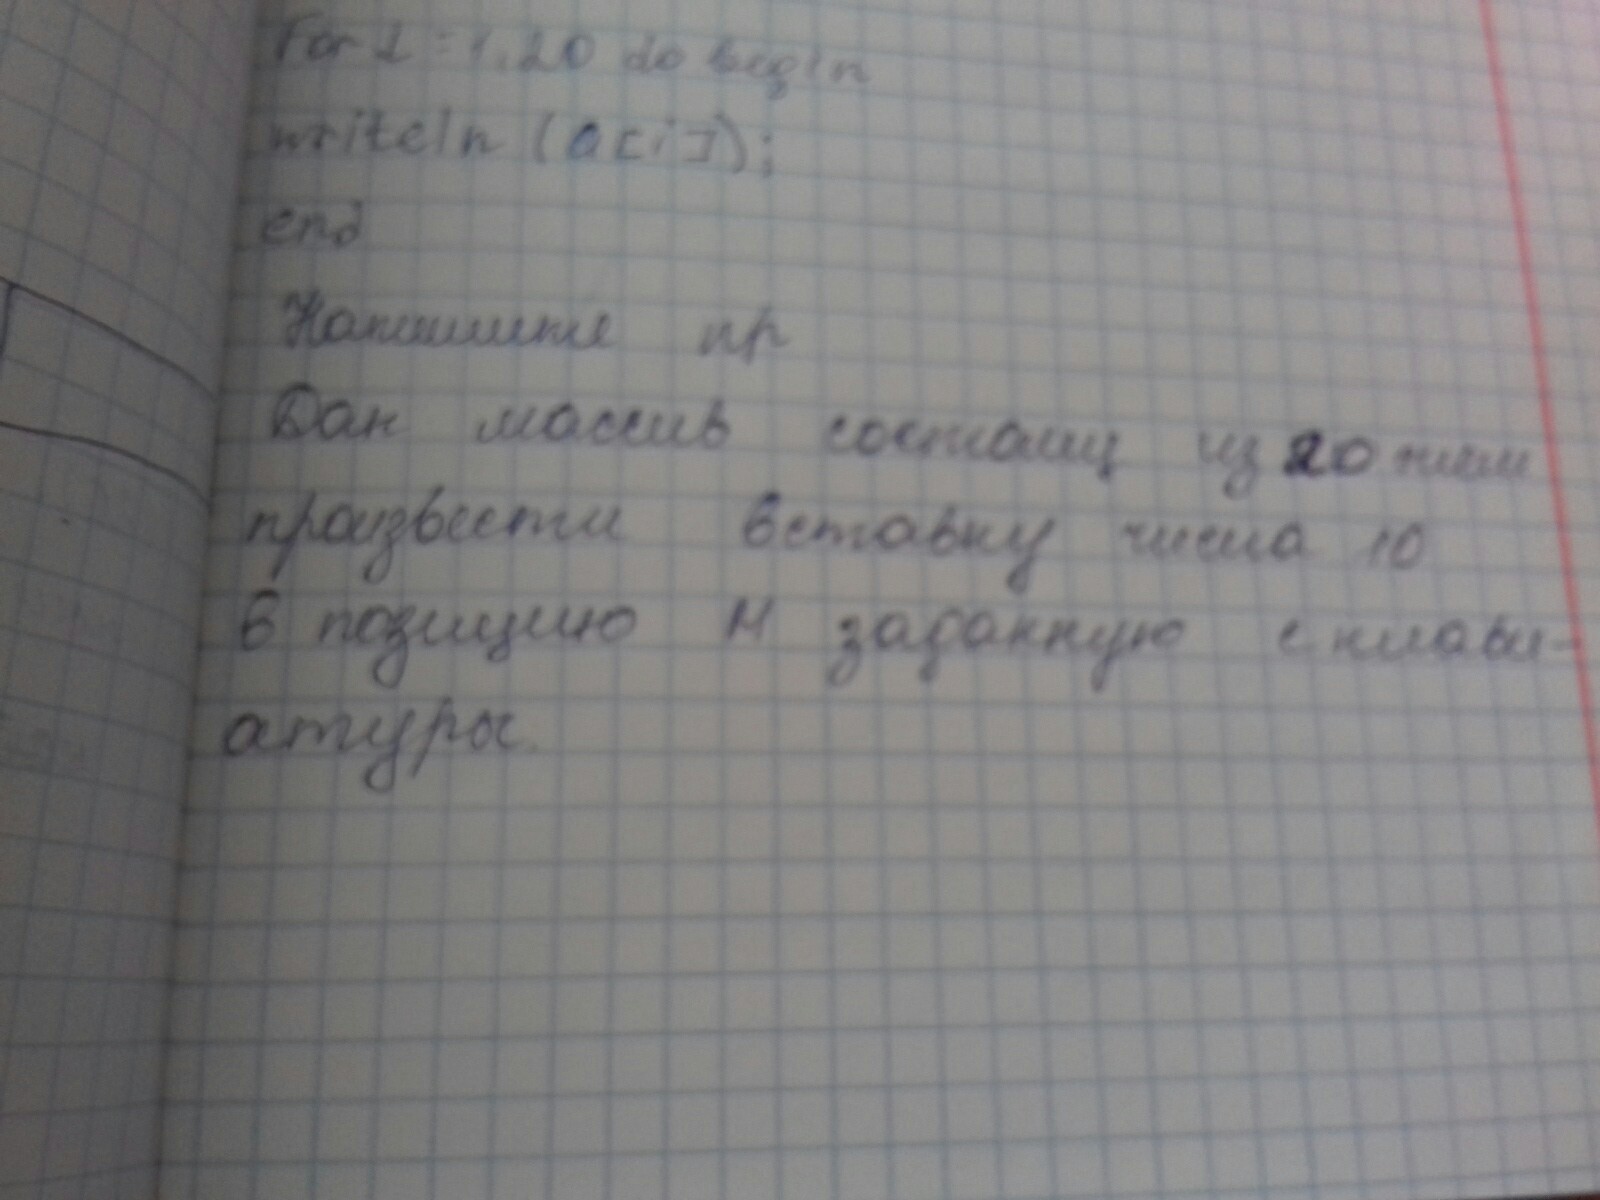 For I = 1.20 do begin
writeln (a[i]);
end
Напишите пр
Дан массив состоящ из 20 чисел
произвести вставку числа 10
в позицию N заданную с клави-
атуры.